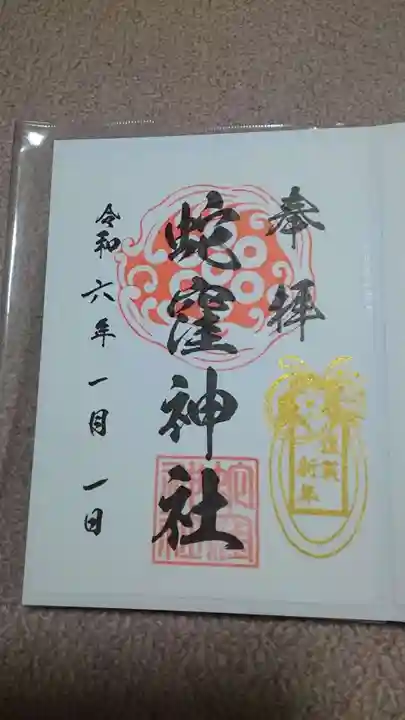 奉拝
謹賀
新年
蛇窪神社
令和六年一月一日